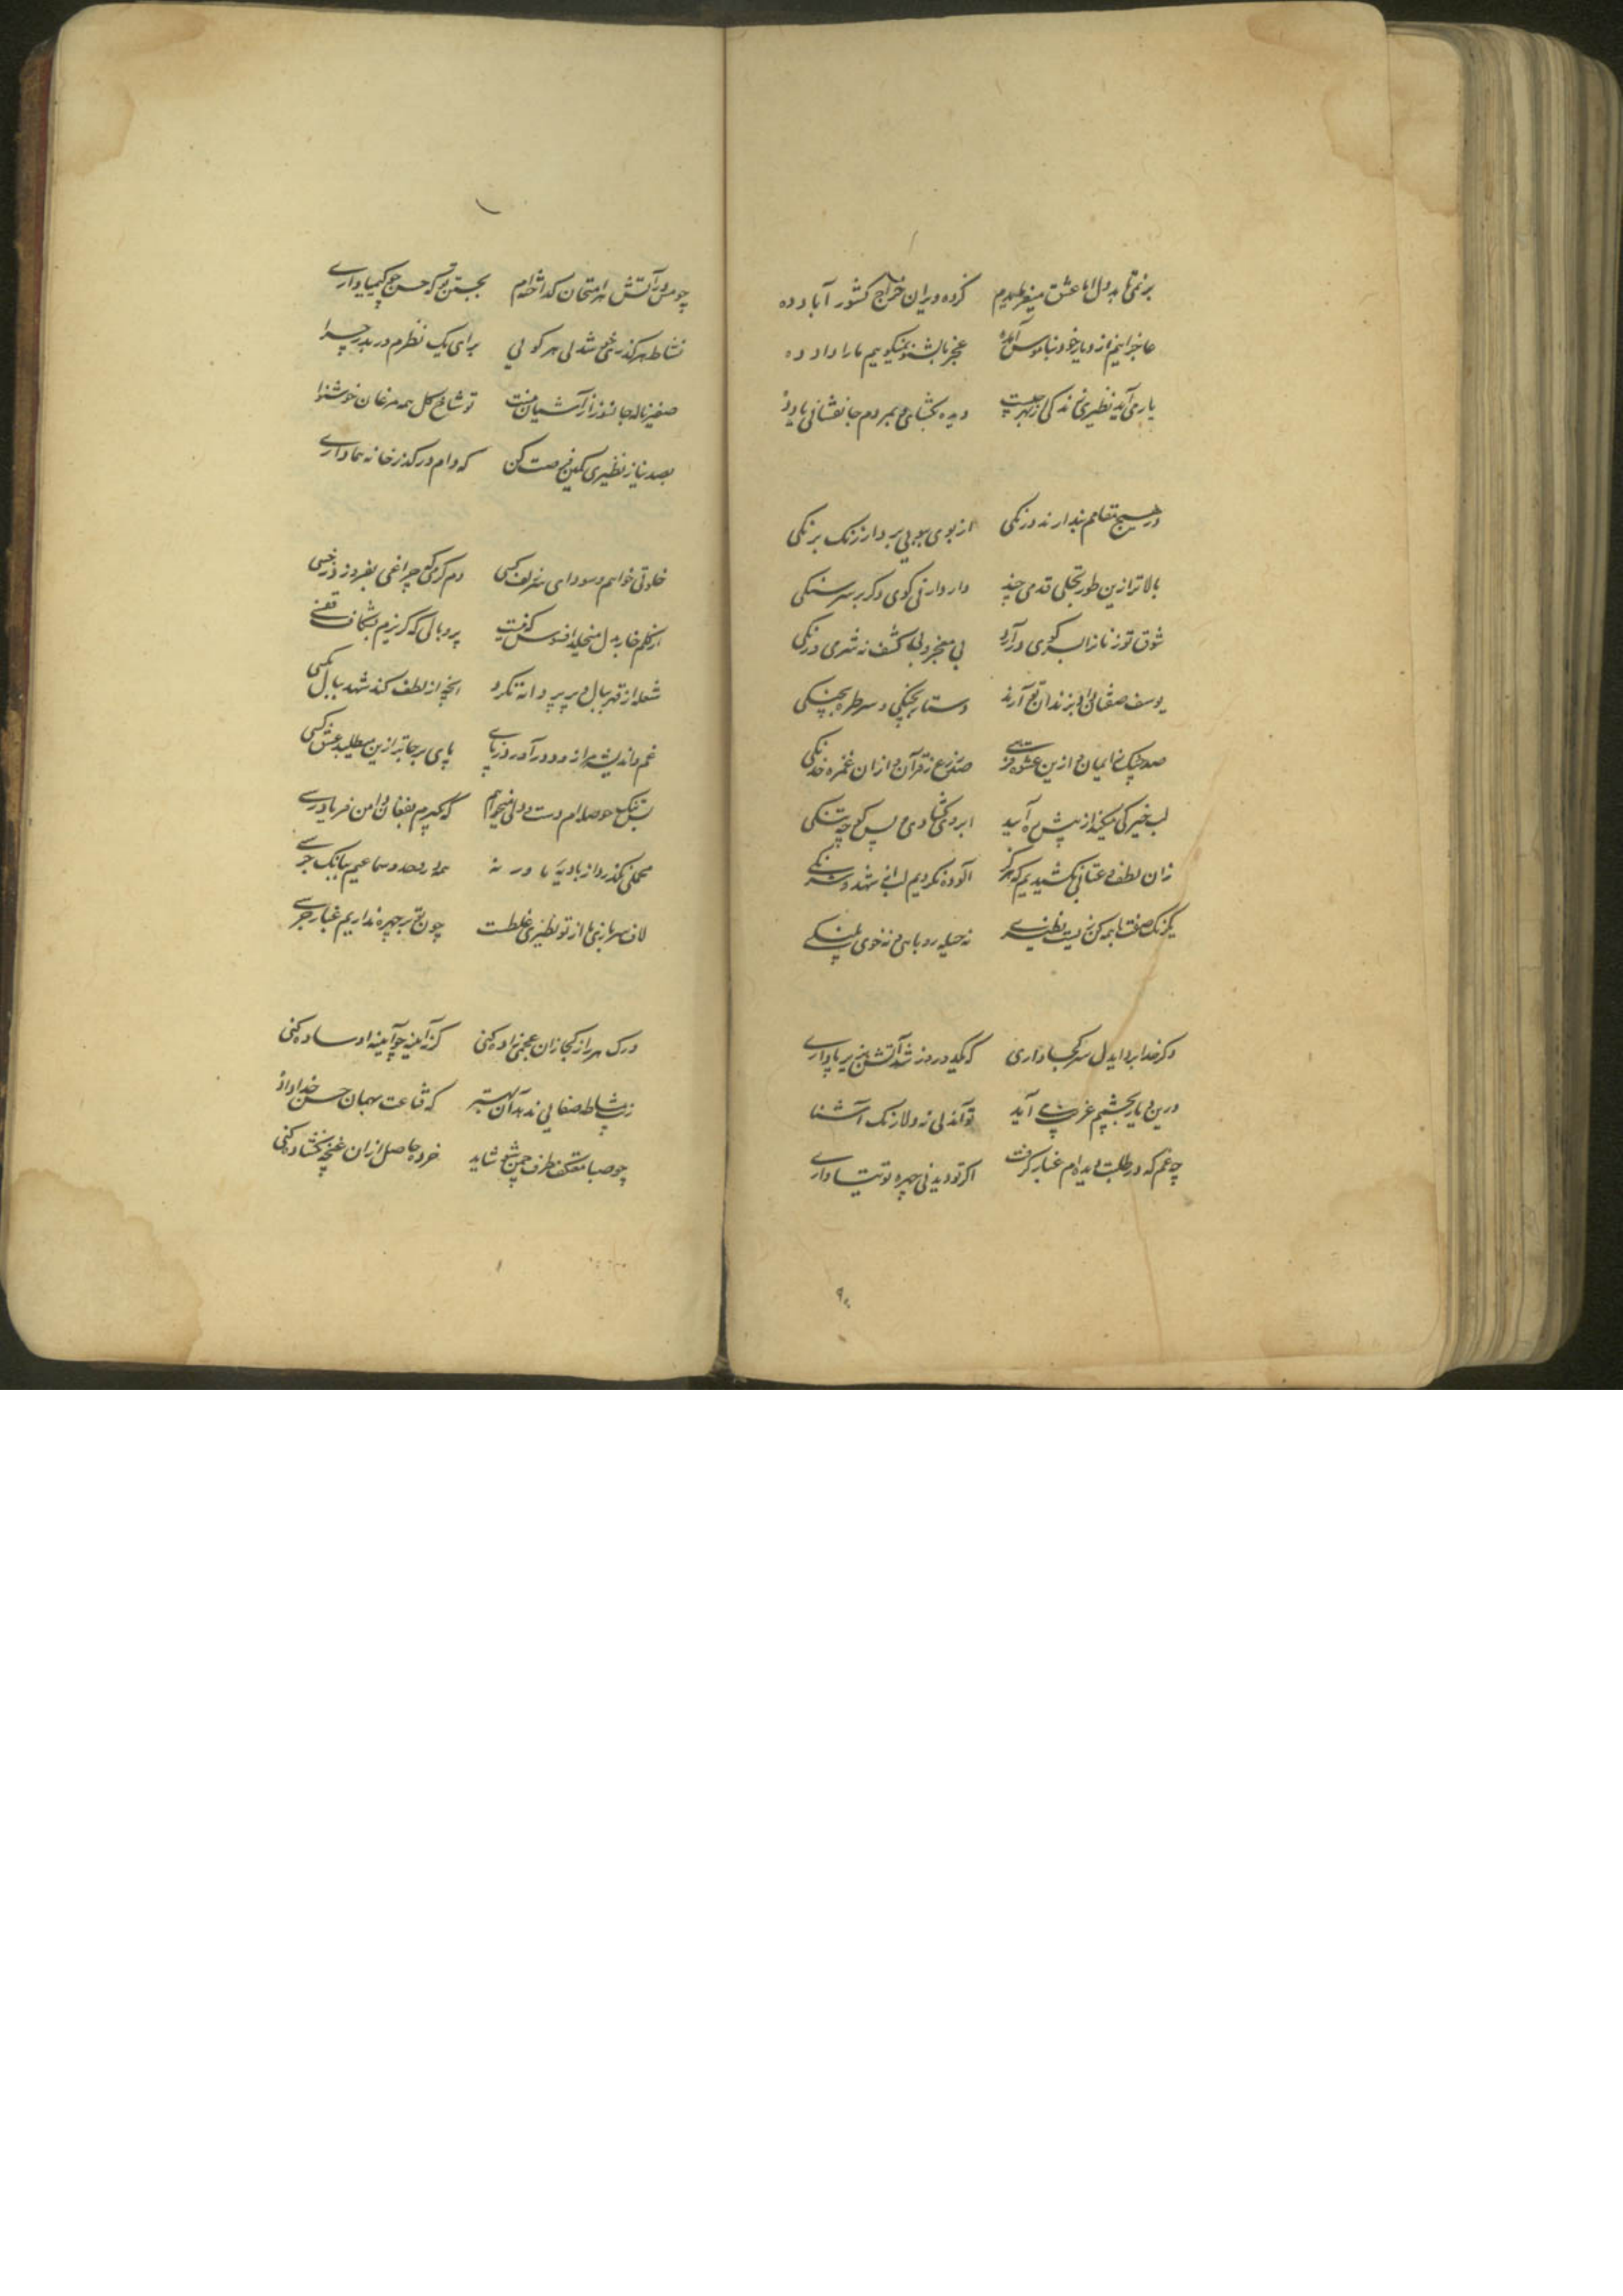 بر نمی‌تابد دل ما عشق میفرماییم کرده ویران خراج کشور آباد ده
عاجز ایم از دیار خود بناموس آمده عجز ما بشنو نمیکوییم ما را داد ده
یار می آید نظیری زندکی از بهر چیست دیده بکشای و بمردم جانفشانی یاد ده
در هیچ مقامم نبدارند درنکی از بوی ببویی برد از رنک برنکی
بالاتر ازین طور تجلی قدمی چند دار و ارنی کوی و کر بر سر سنکی
شوق تو زنار ابسر کوی در آرد بی معجز و بی کشف نه شهری نه درنکی
یوسف صفتان را بزندان تو آرند دستار بچنکی و سر طره بچنکی
صد چاک در ایمان ازین عشوه صف از قرآن و ازان غمزه خدنکی
لب خیر کی میکند از پیش آیید ابرو کشادی و پس کوچه تنکی
زان لطف و عتابی نکشیدیم که هرکز آلوده نکردیم لبی شهد و شرنکی
یکرنک صفت با همه کن زیست نظیری نه حیله روباهی و نه خوی پلنکی
دکر خدا برد ایدل سر کجا داری که یکدو روز شد آتش بزیر پا داری
درین دیار بچشمم غریب می آید تو آمدنی نه ولا رنک آشنا
چه غم که در طلبت دیده ام غبار کرفت اکر تو دیدنی چهره توتیا داری
چو مس در آتش هر امتحان کداخته ام بجستن تو که حسن چو کیمیا داری
نشاط هر کذری خوشدلی هر کویی برای یک نظرم در بدر چرا
صفیر ناله جانسوز از آشیان منست تو شاخ کل همه مرغان خوشنوا
بصد نیاز نظیری کمین فرصت کن که دام در کذر خانه هما داری
خلوتی خواهم و سودای سر زلف کسی دم کرمی که چراغی بفروزد ز خسی
از کلم خار بدل میخلد افسوس که نیست پر و بالی که کریزم بشکاف قفسی
شعله از قهر ببال و پر پروانه نکرد آنچه از لطف کند شهد ببال مکسی
غم و اندیشه در آورد ز پای پای بر جاتر ازین میطلبد عشق کسی
تنک حوصله ام دست و دلی میخواهم که بکیرم بفغان دامن فریادرسی
محملی نکذرد از بادیه ما ور نه همه در وجد و سماعیم ببانک جرسی
لاف سر بازیها از تو نظیری غلطست چون تو بر چهره نداریم غبار فرسی
درک هر راز کجا زان عجمی زاده کنی کز آینه چو آیینه او ساده کنی
زیب مشاطه صفایی ندهد آن بهتر که قناعت بهمان حسن خداداد
چو صبا معتکف طرف چمن شو شاید خرده حاصل ازان غنچه نکشاده کنی